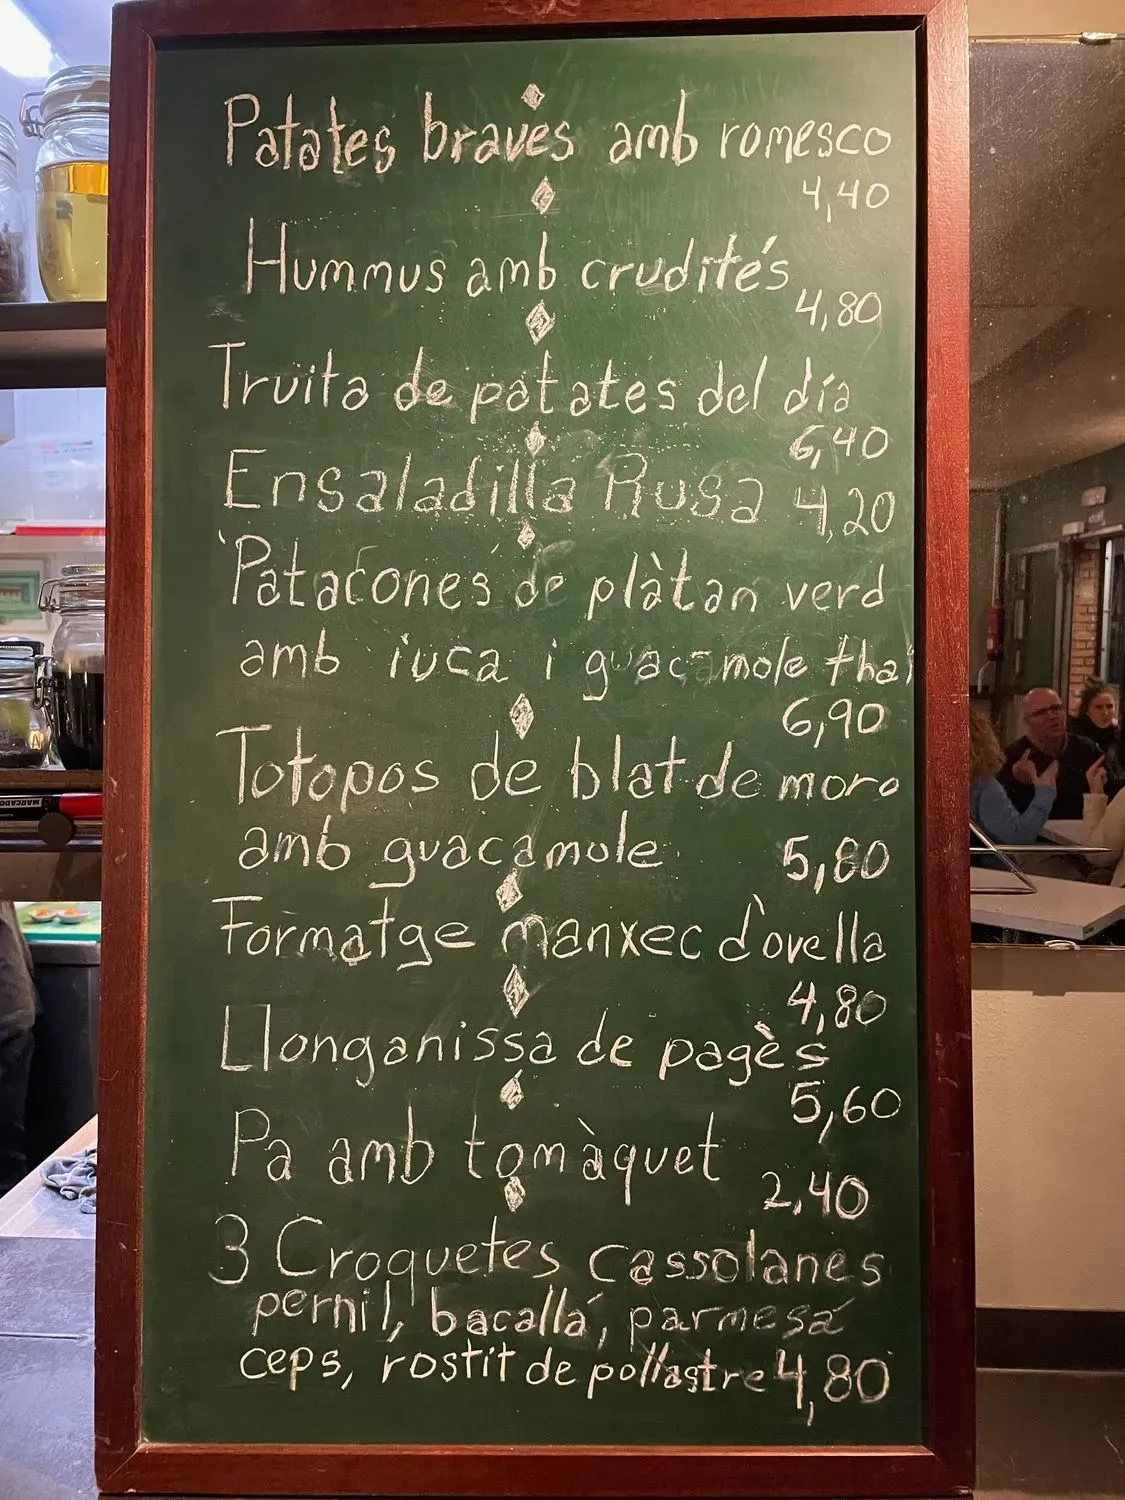 Patates braves amb romesco
4,40
Hummus amb crudités
4,80
Truita de patates del día
6,40
Ensaladilla Rusa 4,20
Patacones de plàtan verd
amb iuca i guacamole thai
6,90
Totopos de blat de moro
amb guacamole 5,80
Formatge manxec d'ovella
4,80
Llonganissa de pagès
5,60
Pa amb tomàquet
2,40
3 Croquetes cassolanes
pernil, bacallá, parmesá
ceps, rostit de pollastre 4,80